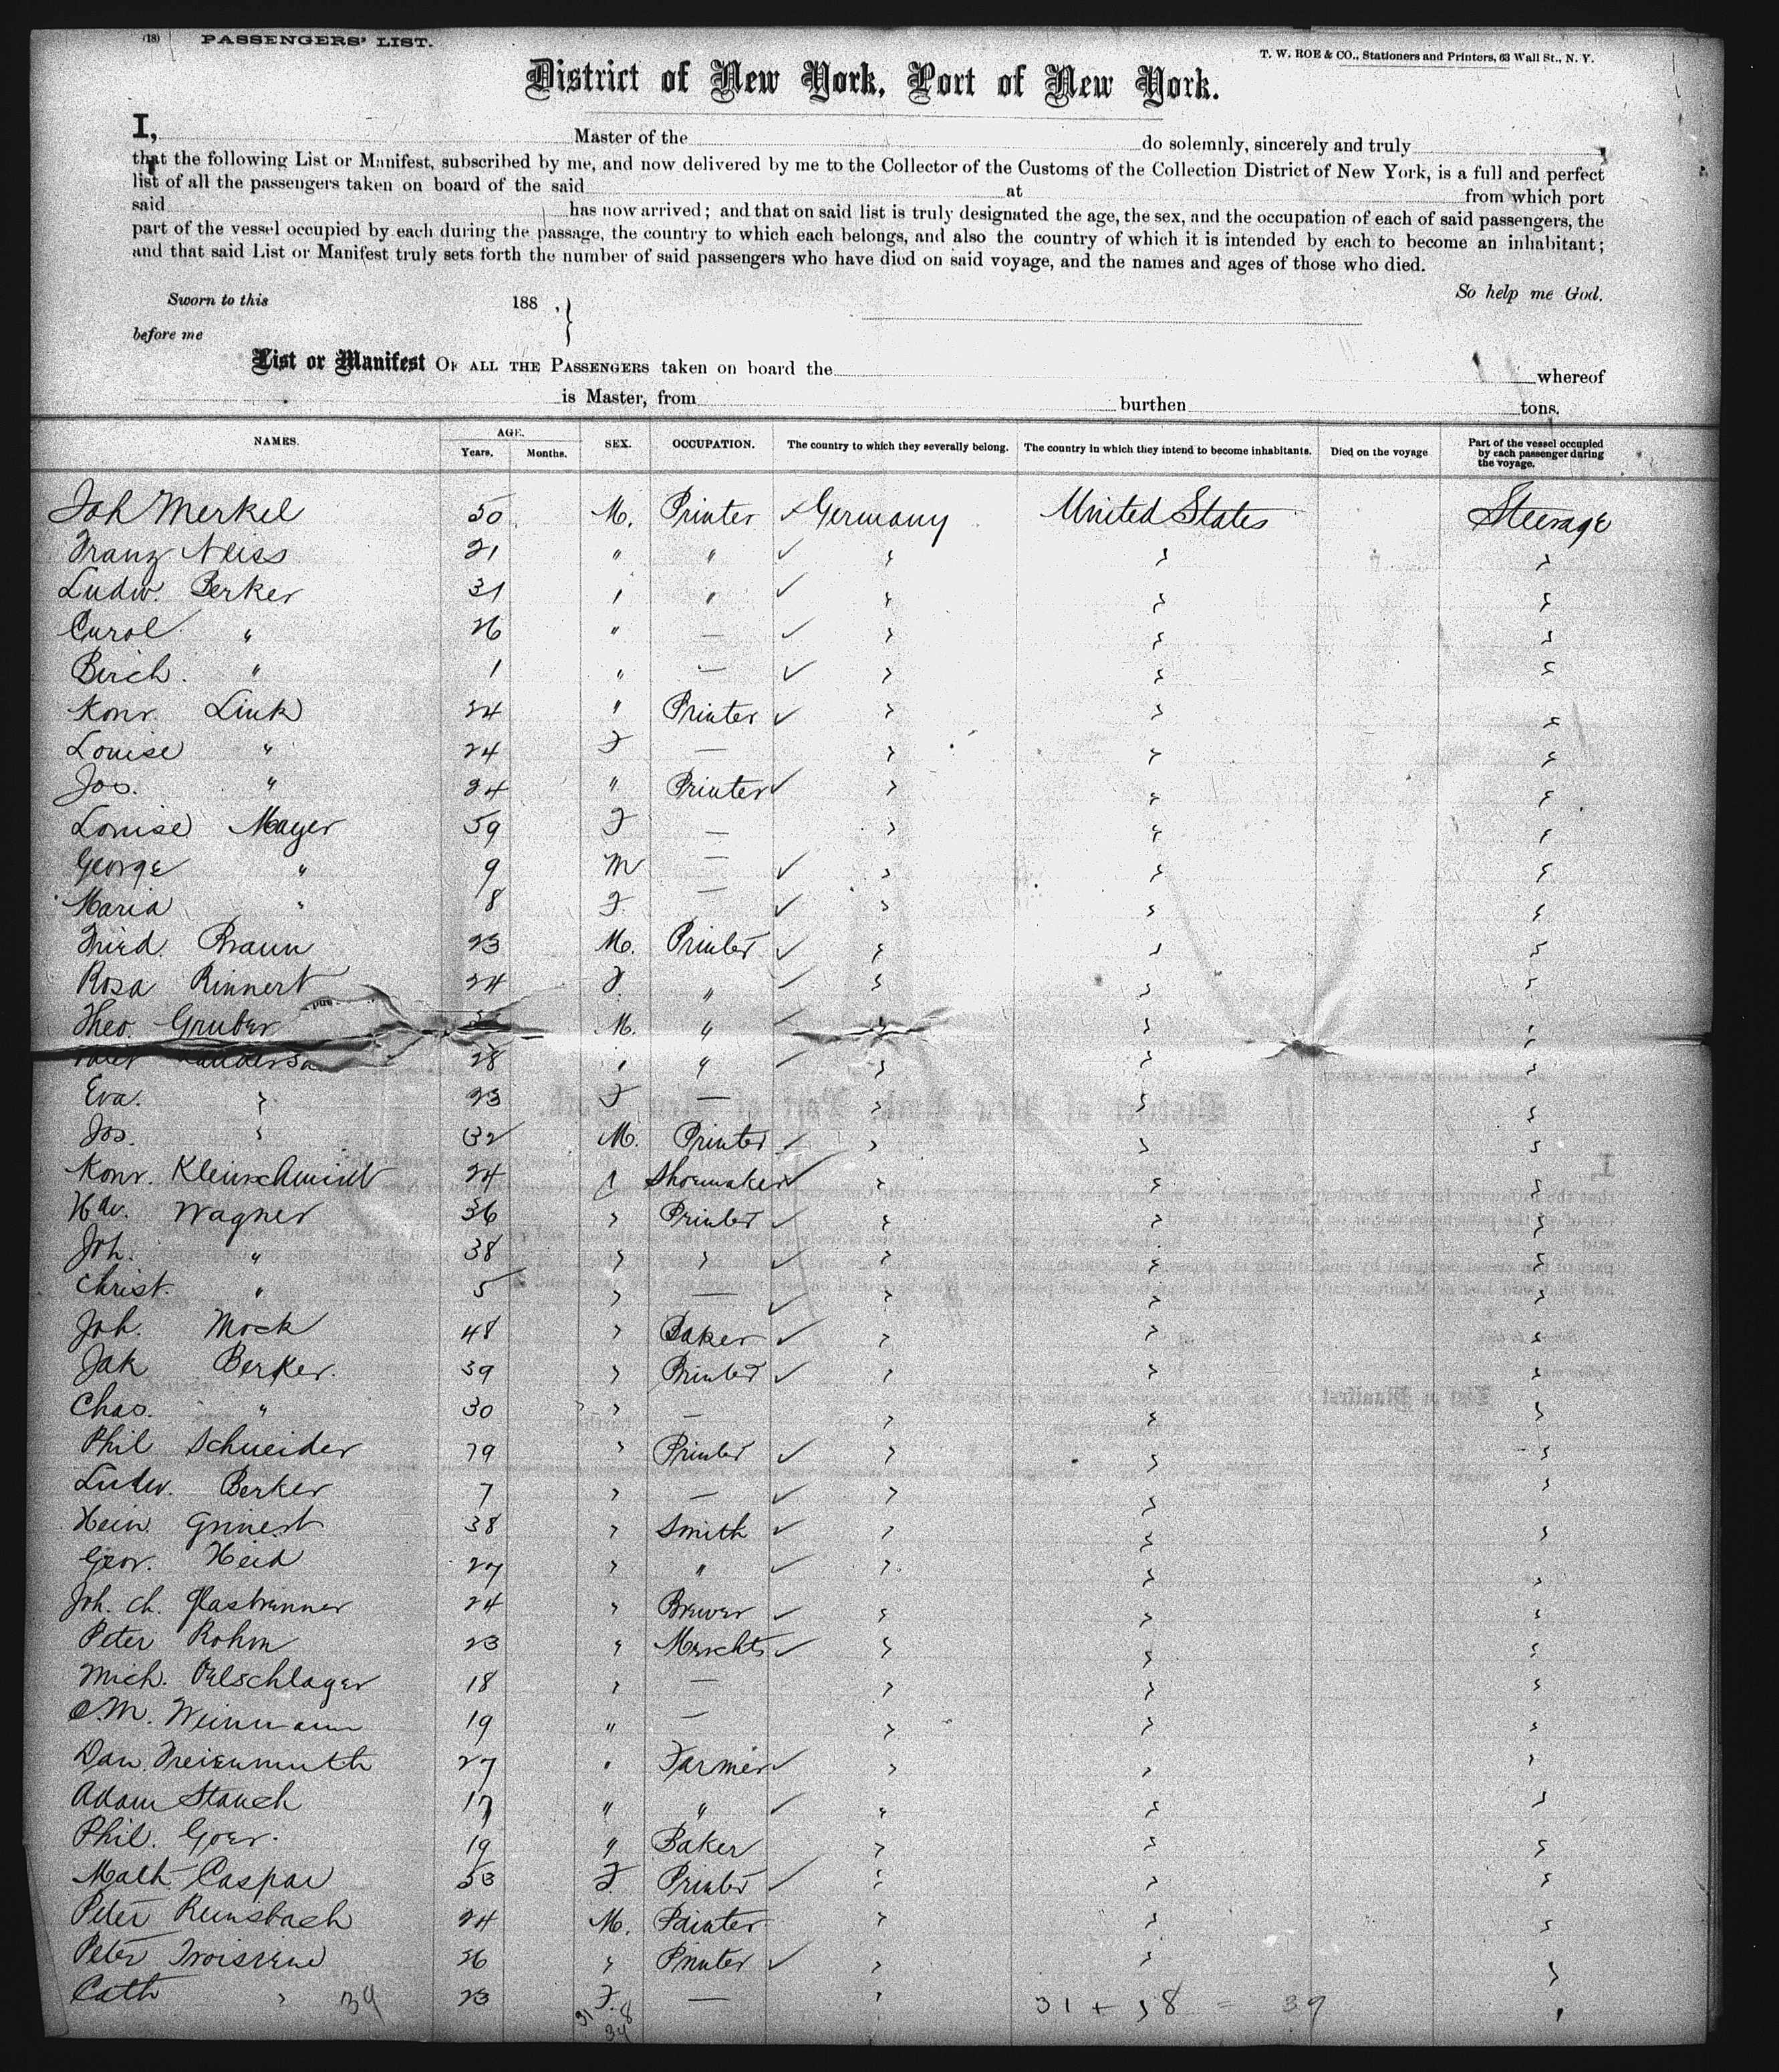 (18) PASSENGERS' LIST.
T. W. ROE & CO., Stationers and Printers, 63 Wall St., N. Y.
District of New York, Port of New York.
I, Master of the do solemnly, sincerely and truly
that the following List or Manifest, subscribed by me, and now delivered by me to the Collector of the Customs of the Collection District of New York, is a full and perfect
list of all the passengers taken on board of the said at from which port
said has now arrived; and that on said list is truly designated the age, the sex, and the occupation of each of said passengers, the
part of the vessel occupied by each during the passage, the country to which each belongs, and also the country of which it is intended by each to become an inhabitant;
and that said List or Manifest truly sets forth the number of said passengers who have died on said voyage, and the names and ages of those who died.
So help me God.
Sworn to this 188 ,
before me
List or Manifest OF ALL THE PASSENGERS taken on board the whereof
is Master, from burthen tons.
NAMES. AGE. Years. Months. SEX. OCCUPATION. The country to which they severally belong. The country in which they intend to become inhabitants. Died on the voyage Part of the vessel occupied by each passenger during the voyage.
Joh Merkel 50 M. Printer Germany United States Steerage
Franz Neiss 21 " "
Ludw. Berker 31 " "
Carol " 26 " —
" 1 " —
Konr. Link 24 " Printer
Louise " 24 F —
Jos. " 24 " Printer
Louise Mayer 59 F —
George " 9 M —
Maria " 8 F. —
Fried. Braun 23 M. Printer
Rosa Rinnert 24 F. "
Theo. Gruber M. "
28 " "
Eva. " 23 F —
Jos. " 32 M. Printer
Konr. Kleinschmidt 24 " Shoemaker
Wagner 36 " Printer
Joh. " 38 " "
Christ. " 5 " —
Joh. Mock 48 " Baker
Jak Berker. 39 " Printer
Chas. " 30 " —
Phil Schneider 19 " Printer
Ludw. Berker 7 " —
Hein. 38 " Smith
Geor. Heid 27 " "
Joh. Ch. Glasbrenner 24 " Brewer
Peter Rohm 23 " Merchts
Mich. Oelschlager 18 " —
Weinmann 19 " —
Dan. Freienmuth 27 " Farmer
Adam Stauch 17 " "
Phil. Goer. 19 " Baker
Math Caspar 53 F. Printer
Peter Reinsbach 24 M. Painter
Peter 26 " Printer
Cath " 39 23 F. —
31 + 8 = 39
31 8
39